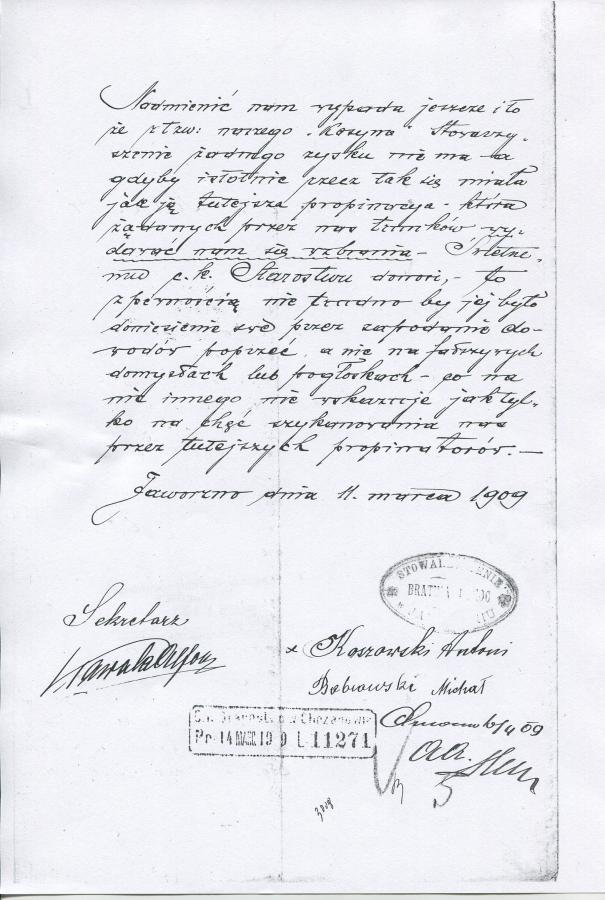 Nadmienić nam wypada jeszcze i to
że z tzw: naszego „Kasyna" Stowarzy-
szenie żadnego zysku nie ma - a
gdyby istotnie rzecz tak się miała
jak ją tutejsza propinacya - która
żądanych przez nas trunków wy-
dawać nam się wzbrania - Świetne-
mu c. k. Starostwu donosi, - to
z pewnością nie trudno by jej było
doniesienie swe przez zapodanie do-
wodów poprzeć, a nie na fałszywych
domysłach lub pogłoskach - co na
nic innego nie wskazuje jak tyl-
ko na chęć szykanowania nas
przez tutejszych propinatorów. -
Jaworzno dnia 11. marca 1909
STOWARZYSZENIE
BRATNIA
Sekretarz
Koszowski Antoni
Bobrowski Michał
C.k. Starostwo w Chrzanowie
Pr. 14 MARZ. 19 9 L 11271
6/4 09